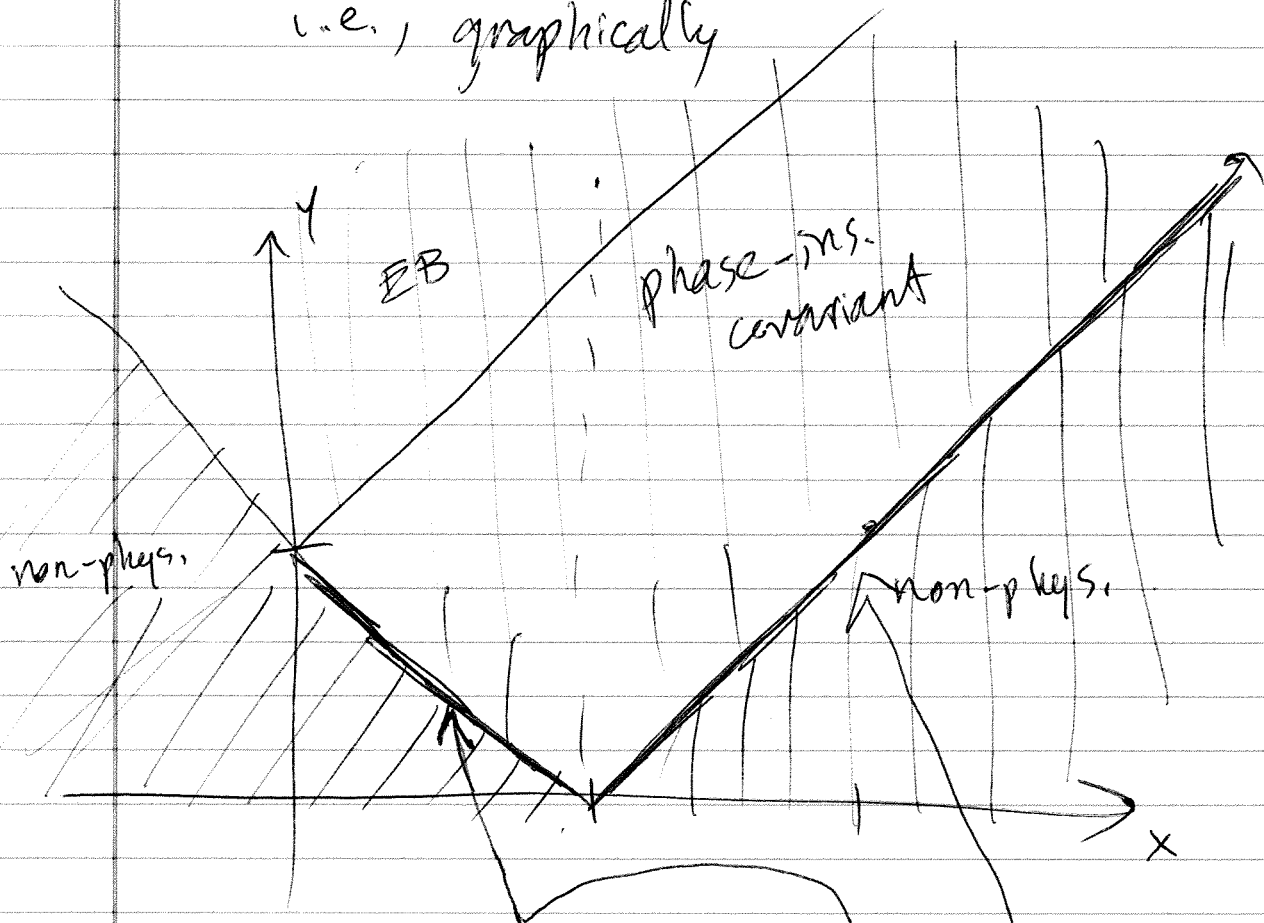 i.e., graphically
Y
EB
phase-ins.
covariant
non-phys.
non-phys.
X